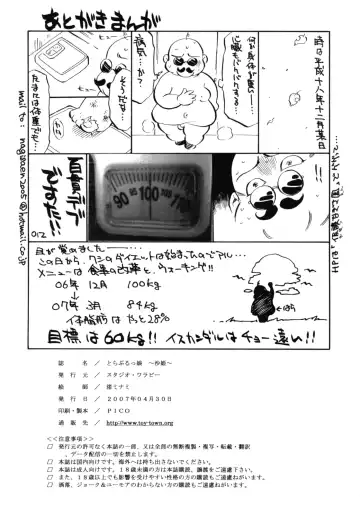 あとがきまんが
時は平成十八年十二月某日
何か身体が重い…
心臓もバクバクする…
病気…か?
そうだな…
たまには体重でも…
mail to: nagisaen2005@hotmail.co.jp
百貫デブ
ですだ!!
012
90 100 110
目が覚めました———
この日から、ワシのダイエットは始まったのでアル…
メニューは食事の改革と、ウォーキング!!
06年 12月 100kg
07年 3月 84kg
体脂肪は やっと28%
目標は60kg!! イスカンダルはチョー遠い!!
誌 名 / とらぶるっ娘 ~沙姫~
発 行 元 / スタジオ・ワラビー
絵 師 / 渚ミナミ
発 行 日 / 2007年04月30日
印刷・製本 / PICO
通 販 先 / http://www.toy-town.org
<<注意事項>>
□ 発行元の許可なく本誌の一部、又は全部の無断複製・複写・転載・翻訳
、データ配信の一切を禁止します。
□ 本誌は国内向けです。海外へは持ち出さないでください。
□ 本誌は成人向けです。18歳未満の方は本誌の購読、譲渡をご遠慮下さい。
□ また、18歳以上でも影響を受けやすい性格の方の購読もご遠慮ねがいます。
□ 洒落、ジョーク&ユーモアのわからない方の購読もご遠慮ねがいます。